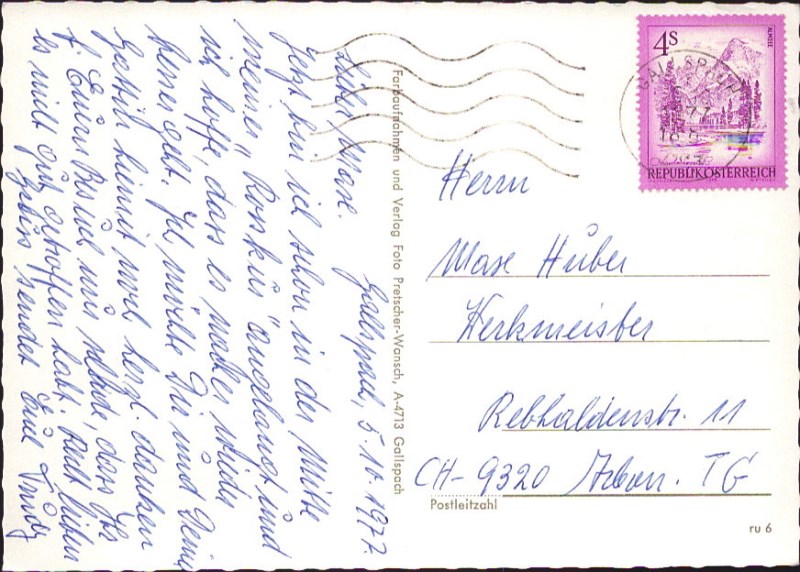 Gallspach, 5.10.1977.
Lieber Maxe.
Jetzt bin ich schon in der Mitte
meiner "Rosskur" angelangt und
ich hoffe, dass es nachher wieder
besser geht. Ich möchte Dir und Deine
hiermit noch herzl. danken
f. Euern Besuch und, dass Ihr
es mitt gut getroffen habt. Recht lieben
sendet Eure Trudy
Farbaufnahmen und Verlag Foto Pretscher-Wansch, A-4713 Gallspach
4 S
ALMSEE
REPUBLIK ÖSTERREICH
GALLSPACH
Herrn
Maxe Huber
Werkmeister
Rebhaldenstr. 11
CH-9320 Arbon. TG
Postleitzahl
ru 6